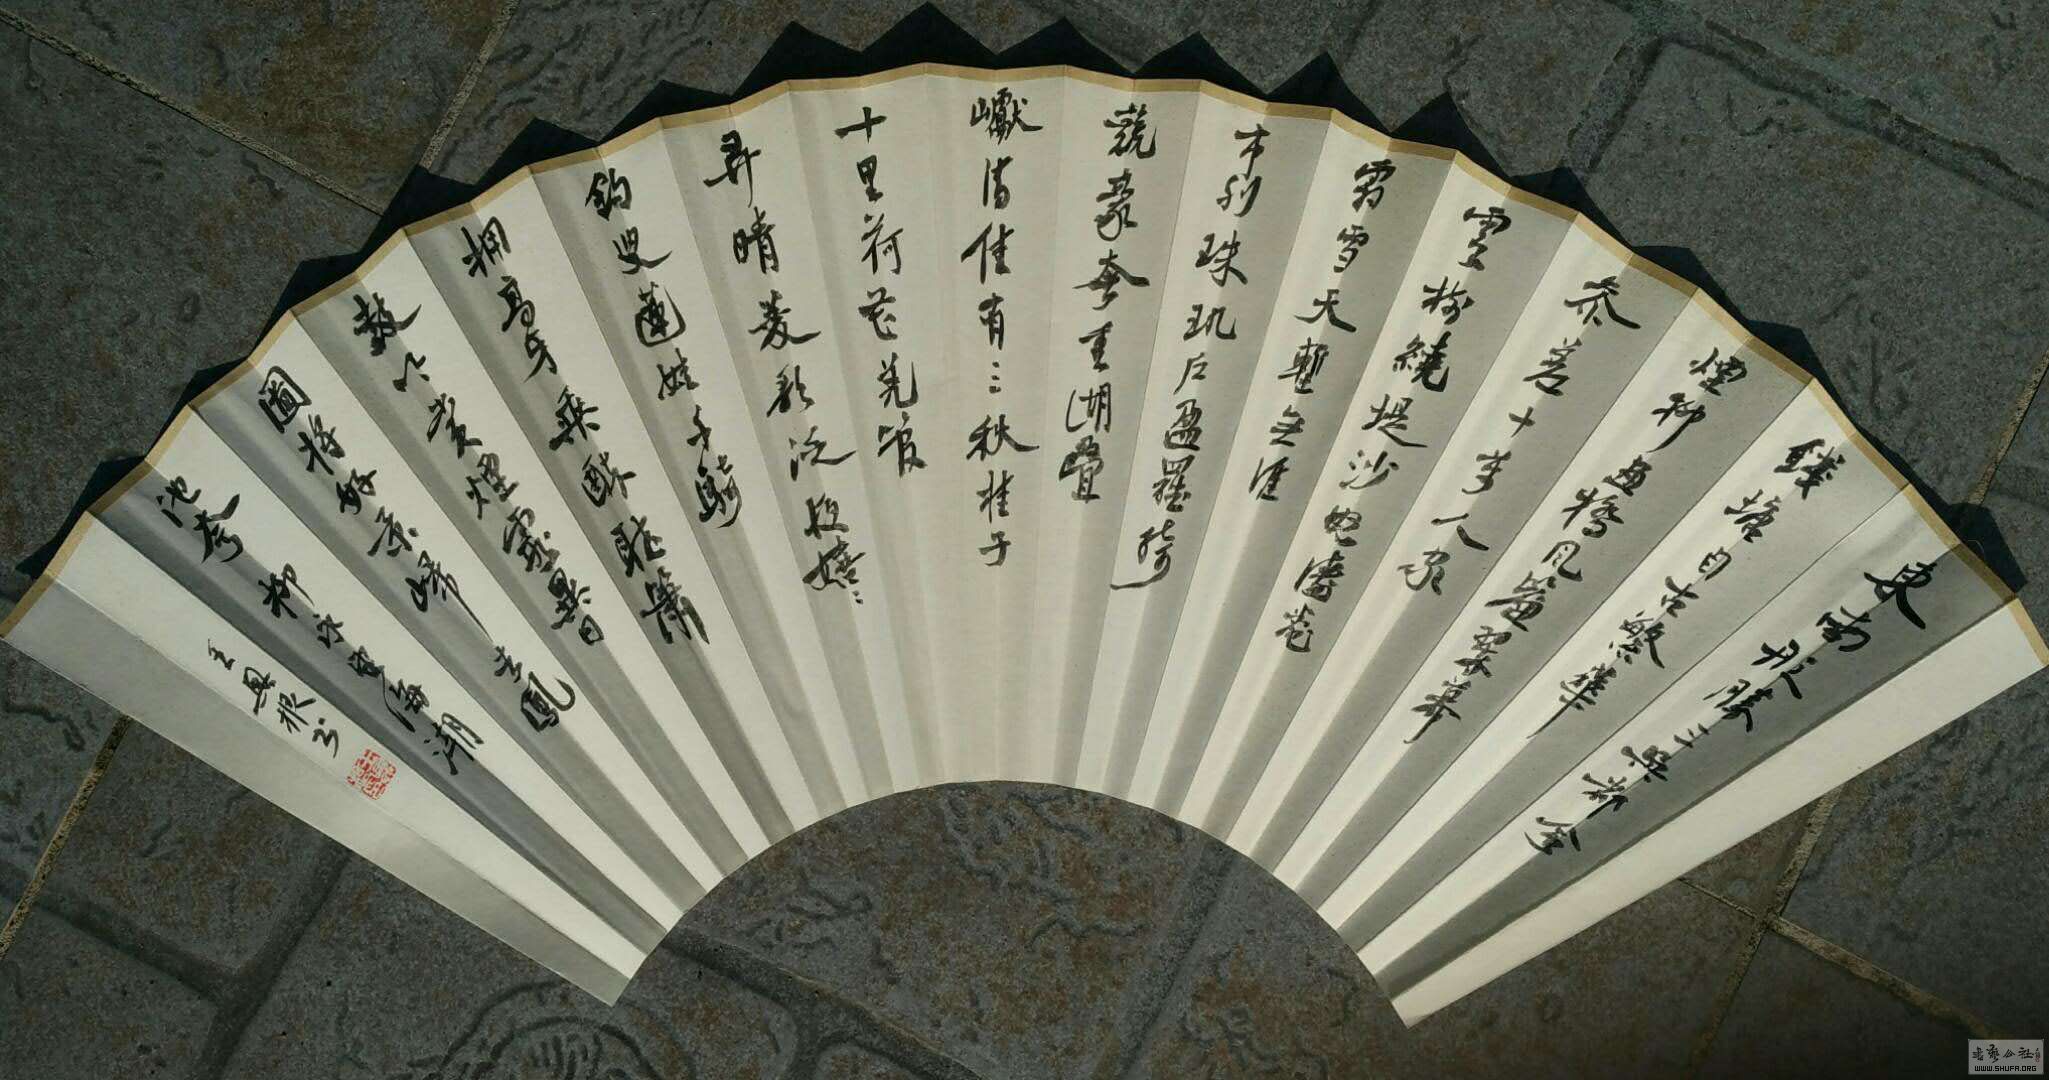 東南形勝三吳都會
錢塘自古繁華
煙柳畫橋風簾翠幕
參差十萬人家
雲樹繞堤沙怒濤卷
霜雪天塹無涯
市列珠璣戶盈羅綺
競豪奢重湖疊
巘清佳有三秋桂子
十里荷花羌管
弄晴菱歌泛夜嬉嬉
釣叟蓮娃千騎
擁高牙乘醉聽簫
鼓吟賞煙霞異日
圖將好景歸去鳳
池夸 柳永望海潮
王興根书
WWW.SHUFA.ORG